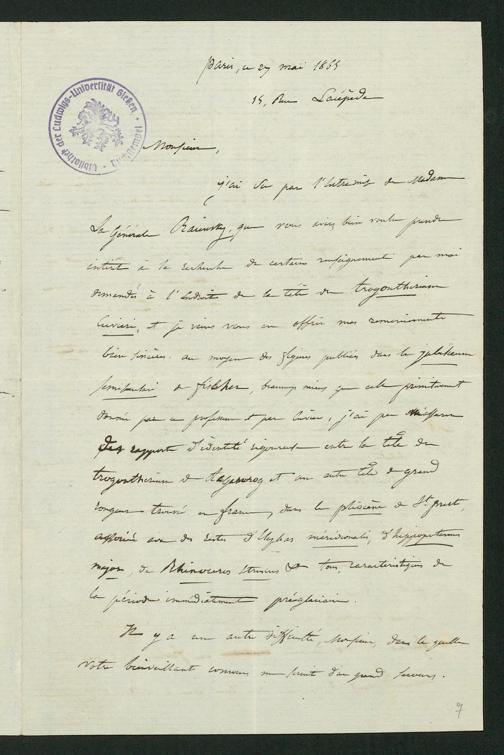 Paris, ce 27 mai 1865
15, Rue Lacépède
Bibliothek der Ludwigs-Universität Gießen
Monsieur,
j'ai su par l'entremise de Madame
la Générale Raievsky, que vous avez bien voulu prendre
intérêt à la recherche de certains renseignements par moi
demandés à l'endroit de la tête de trogontherium
Cuvieri, et je viens vous en offrir mes remerciements
bien sincères. au moyen des figures publiées dans le jubilaeum
semisaeculari de fischer, beaucoup mieux que celle primitivement
donnée par ce professeur et par Cuvier, j'ai pu
des rapports d'identité rigoureux entre la tête du
trogontherium de et une autre tête de grand
rongeur trouvé en france, dans le pliocène de St. prest,
associée avec des restes d'Elephas méridionalis, d'hippopotamus
major, de Rhinoceros & tous caractéristiques de
la période immédiatement préglaciaire.
Il y a une autre difficulté, Monsieur, dans laquelle
votre bienveillant concours me serait d'un grand secours.
7